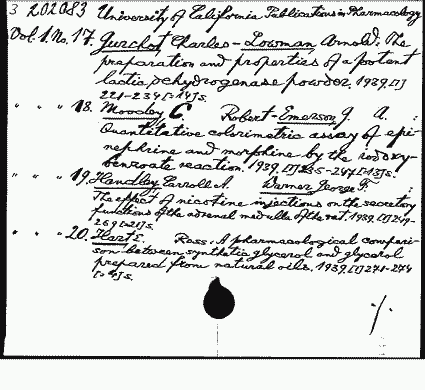 3 202083 University of California Publications in Pharmacology
Vol. 1. No. 17. Gurchot Charles - Lowman Arnold. The
preparation and properties of a potent
lactic dehydrogenase powder. 1939. [1]
221-234 [=14] s.
" " " 18. Moodey C. Robert - Emerson G. A. :
Quantitative colorimetric assay of epi-
nephrine and morphine by the iodoxy-
benzoate reaction. 1939. [1] 235-247 [=13] s.
" " " 19. Handley, Carroll A. Warner George F. :
The effect of nicotine injections on the secretory
functions of the adrenal medulla of the rat. 1939. [1] 249-
269 [=21] s.
" " " 20. Hart E. Ross: A pharmacological compari-
son between synthetic glycerol and glycerol
prepared from natural oils. 1939. [1] 271-274
[=4] s.